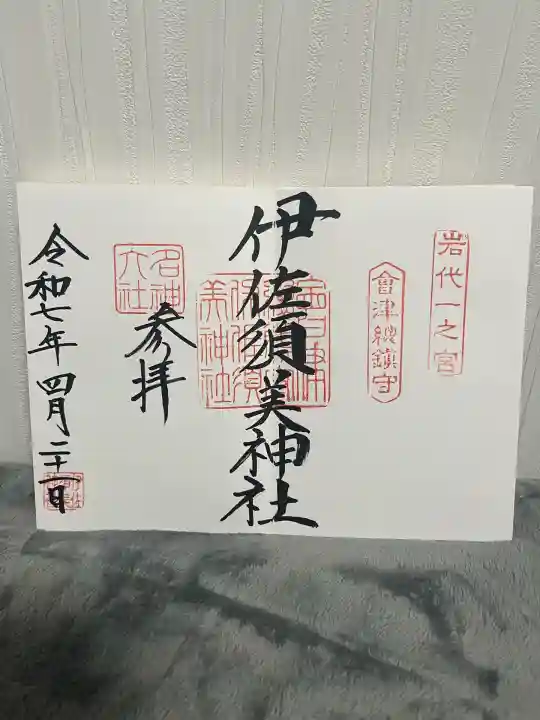 岩代一之宮
會津總鎮守
伊佐須美神社
名神
大社
参拝
令和七年四月二十一日